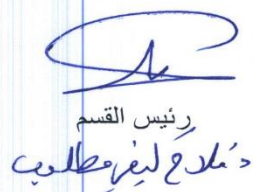 رئيس القسم
د. فلاح ليفي مطلوب